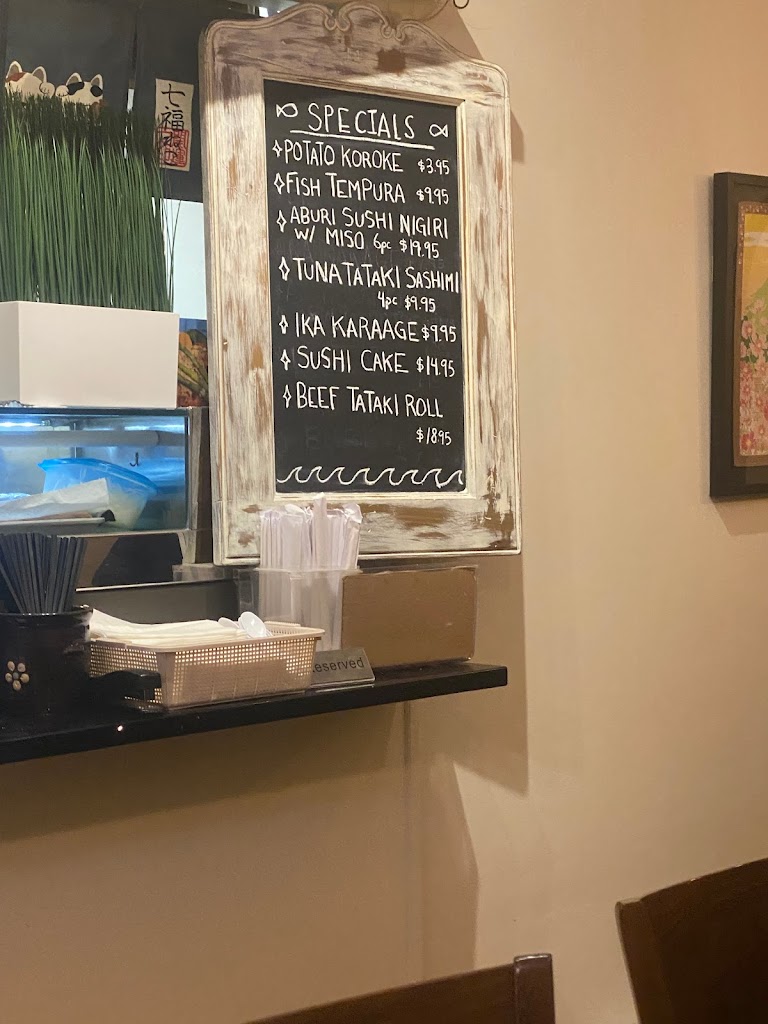 SPECIALS
POTATO KOROKE $3.95
FISH TEMPURA $9.95
ABURI SUSHI NIGIRI
W/ MISO 6pc $19.95
TUNA TATAKI SASHIMI
4pc $9.95
IKA KARAAGE $9.95
SUSHI CAKE $14.95
BEEF TATAKI ROLL
$18.95
七福
Reserved